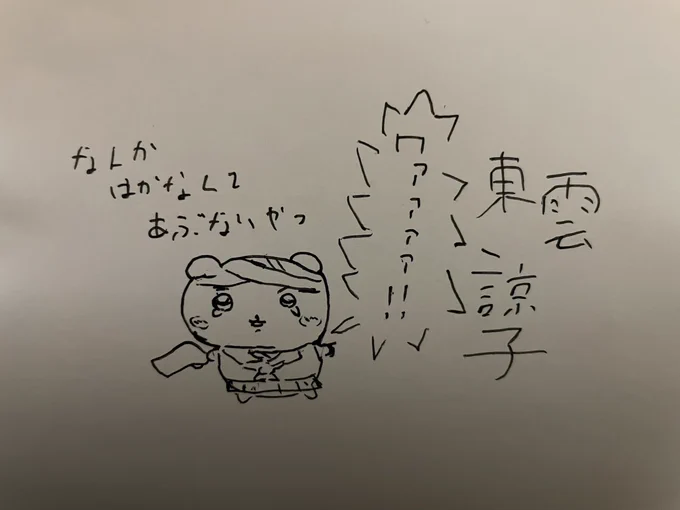 なんか
はかなくて
あぶないやつ
ワァァァァ!!
東雲
諒
子